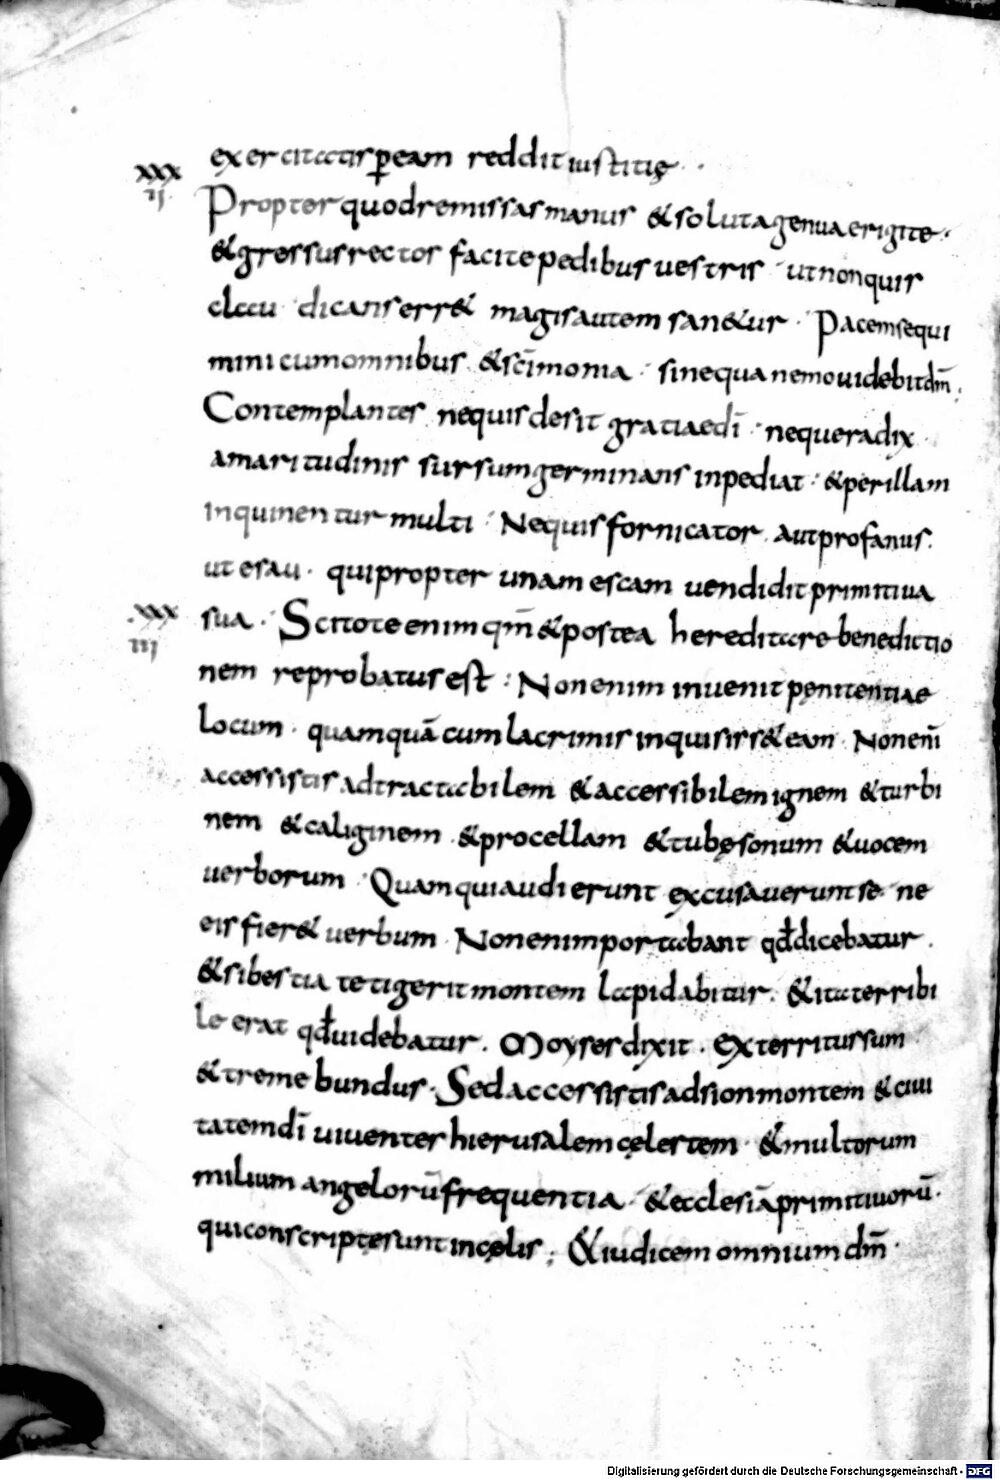 exercitatis p̲eam reddit iustitię ·
xxx
ij.
Propter quod remissas manus & soluta genua erigite ·
& gressus rectos facite pedibus uestris · ut non quis
claudicans err& magis autem san&ur · Pacem sequi
mini cum omnibus & scīmonia · sine qua nemo uidebit dm̄ ;
Contemplantes nequis desit gratiae dī · neque radix
amaritudinis sursum germinans inpediat · & per illam
inquinentur multi · Nequis fornicator aut profanus.
ut esau · qui propter unam escam uendidit primitiua
xxx
iij
sua · Scitote enim qm̄ & postea hereditare benedictio
nem reprobatus est : Non enim inuenit pęnitentiae
locum · quamquā cum lacrimis inquisiss& eam · Non enī
accessistis ad tractabilem & accessibilem ignem & turbi
nem & caliginem & procellam & tubę sonum & uocem
uerborum · Quam qui audierunt excusauerunt se · ne
eis fier& uerbum · Non enim portabant qđ dicebatur .
& si bestia tetigerit montem lapidabitur . & ita terribi
le erat qđ uidebatur . Moyses dixit . Exterritus sum
& tremebundus · Sed accessistis ad sion montem & ciui
tatem dī uiuentes hierusalem cęlestem · & multorum
milium angelorū frequentia · & ecclesiā primitiuorū ·
qui conscripte sunt in cęlis ; & iudicem omnium dm̄ ·
Digitalisierung gefördert durch die Deutsche Forschungsgemeinschaft - DFG